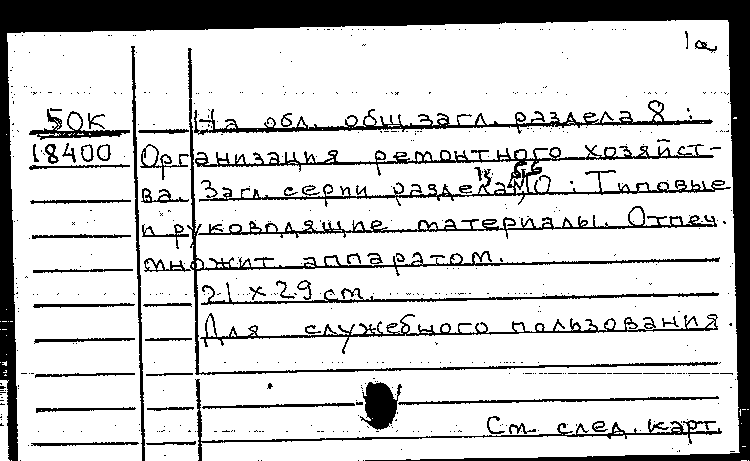 1а
50К
На обл. общ. загл. раздела 8:
18400
Организация ремонтного хозяйст-
ва. Загл. серии раздела МО: Типовые
и руководящие материалы. Отпеч.
множит. аппаратом.
21 х 29 см.
Для служебного пользования.
См. след. карт.